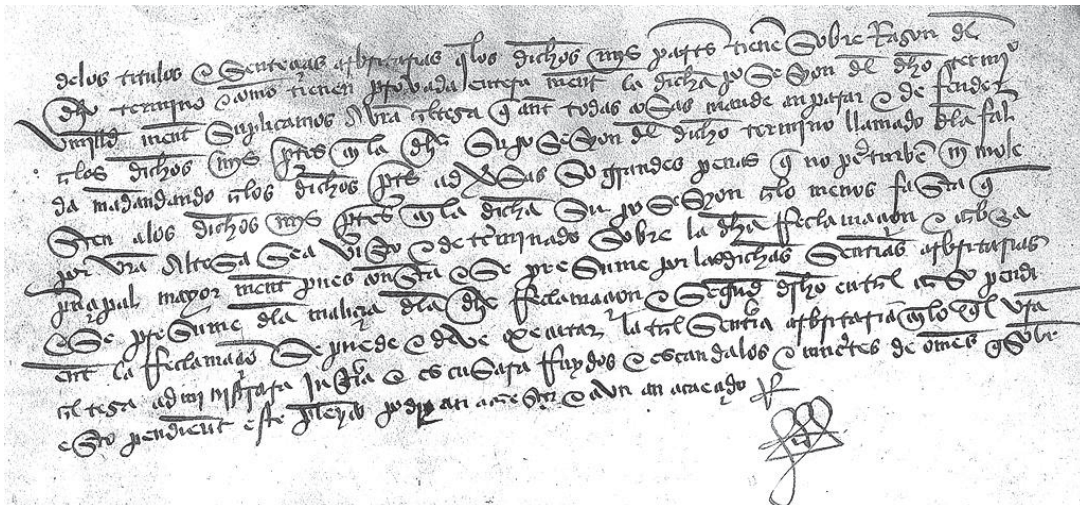 delos titulos e Sentençias arbitrarias q̄ los dichos mys partes tienē Sobre Razon del
dho termino e como tienen provada entera ment la dicha posesyon del dho termi͂o
vmill ment Suplicamos A vr̄a alteza q̄ ant todas cosas mande anparar e defender
a los dichos mys ptes en la dha Su posesyon del dicho termino llamado dla
da mandando a los dichos ptes adversas So grandes penas q̄ no perturbē ni mole
Sten a los dichos mys ptes en la dicha Su posesyon a lo menos fasta q̄
por vr̄a Alteza Sea visto e determinado Sobre la dha rreclamaçion e
prinçipal mayor ment pues consta e Se presume por las dichas Sentençias arbitrarias
e Se presume dla maliçia dla dha rreclamaçion e Segund drho en tal caso pendi
ent la rreclamaçion Se puede e deve executar la tal Sentençia arbitraria en lo q̄l vr̄a
alteza administrara Justiçia e escusara rruydos e escandalos e muertes de omes q̄ Sobre
esto pendient este pleyto podryan acaesçer e avn an acaeçido